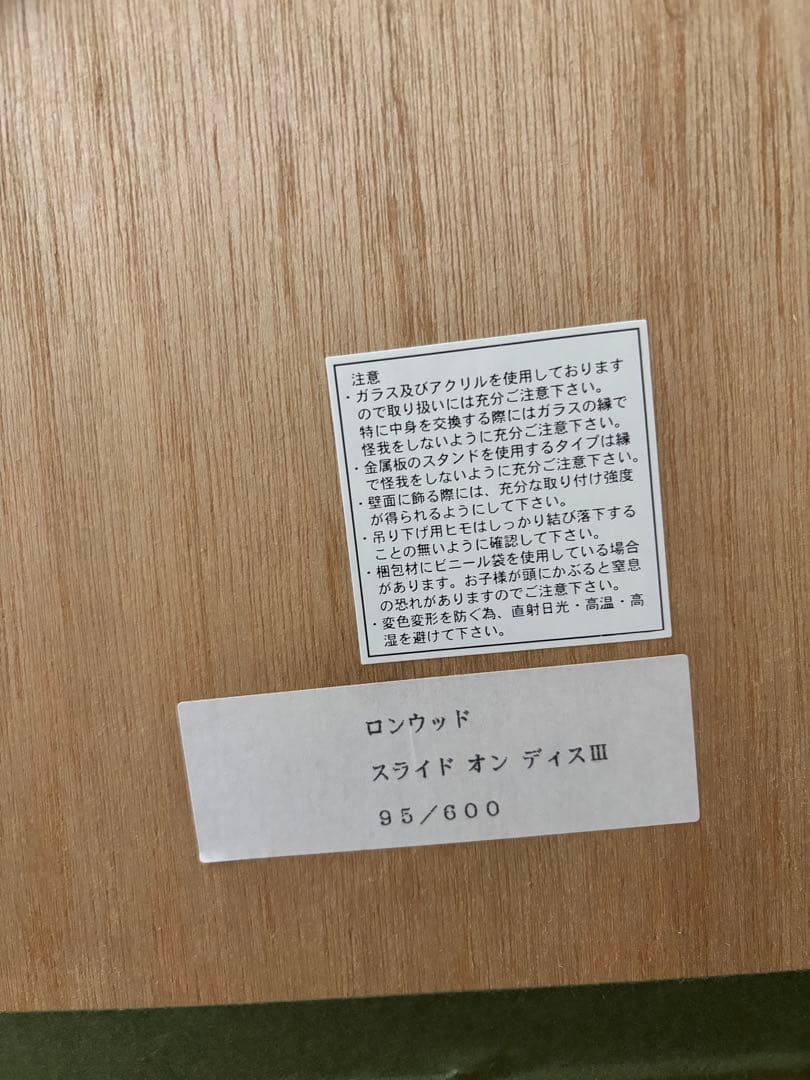 注意
・ガラス及びアクリルを使用しております
ので取り扱いには充分ご注意下さい。
特に中身を交換する際にはガラスの縁で
怪我をしないように充分ご注意下さい。
・金属板のスタンドを使用するタイプは縁
で怪我をしないように充分ご注意下さい。
・壁面に飾る際には、充分な取り付け強度
が得られるようにして下さい。
・吊り下げ用ヒモはしっかり結び落下する
ことの無いように確認して下さい。
・梱包材にビニール袋を使用している場合
があります。お子様が頭にかぶると窒息
の恐れがありますのでご注意下さい。
・変色変形を防ぐ為、直射日光・高温・高
湿を避けて下さい。
ロンウッド
スライド オン ディスⅢ
９５／６００